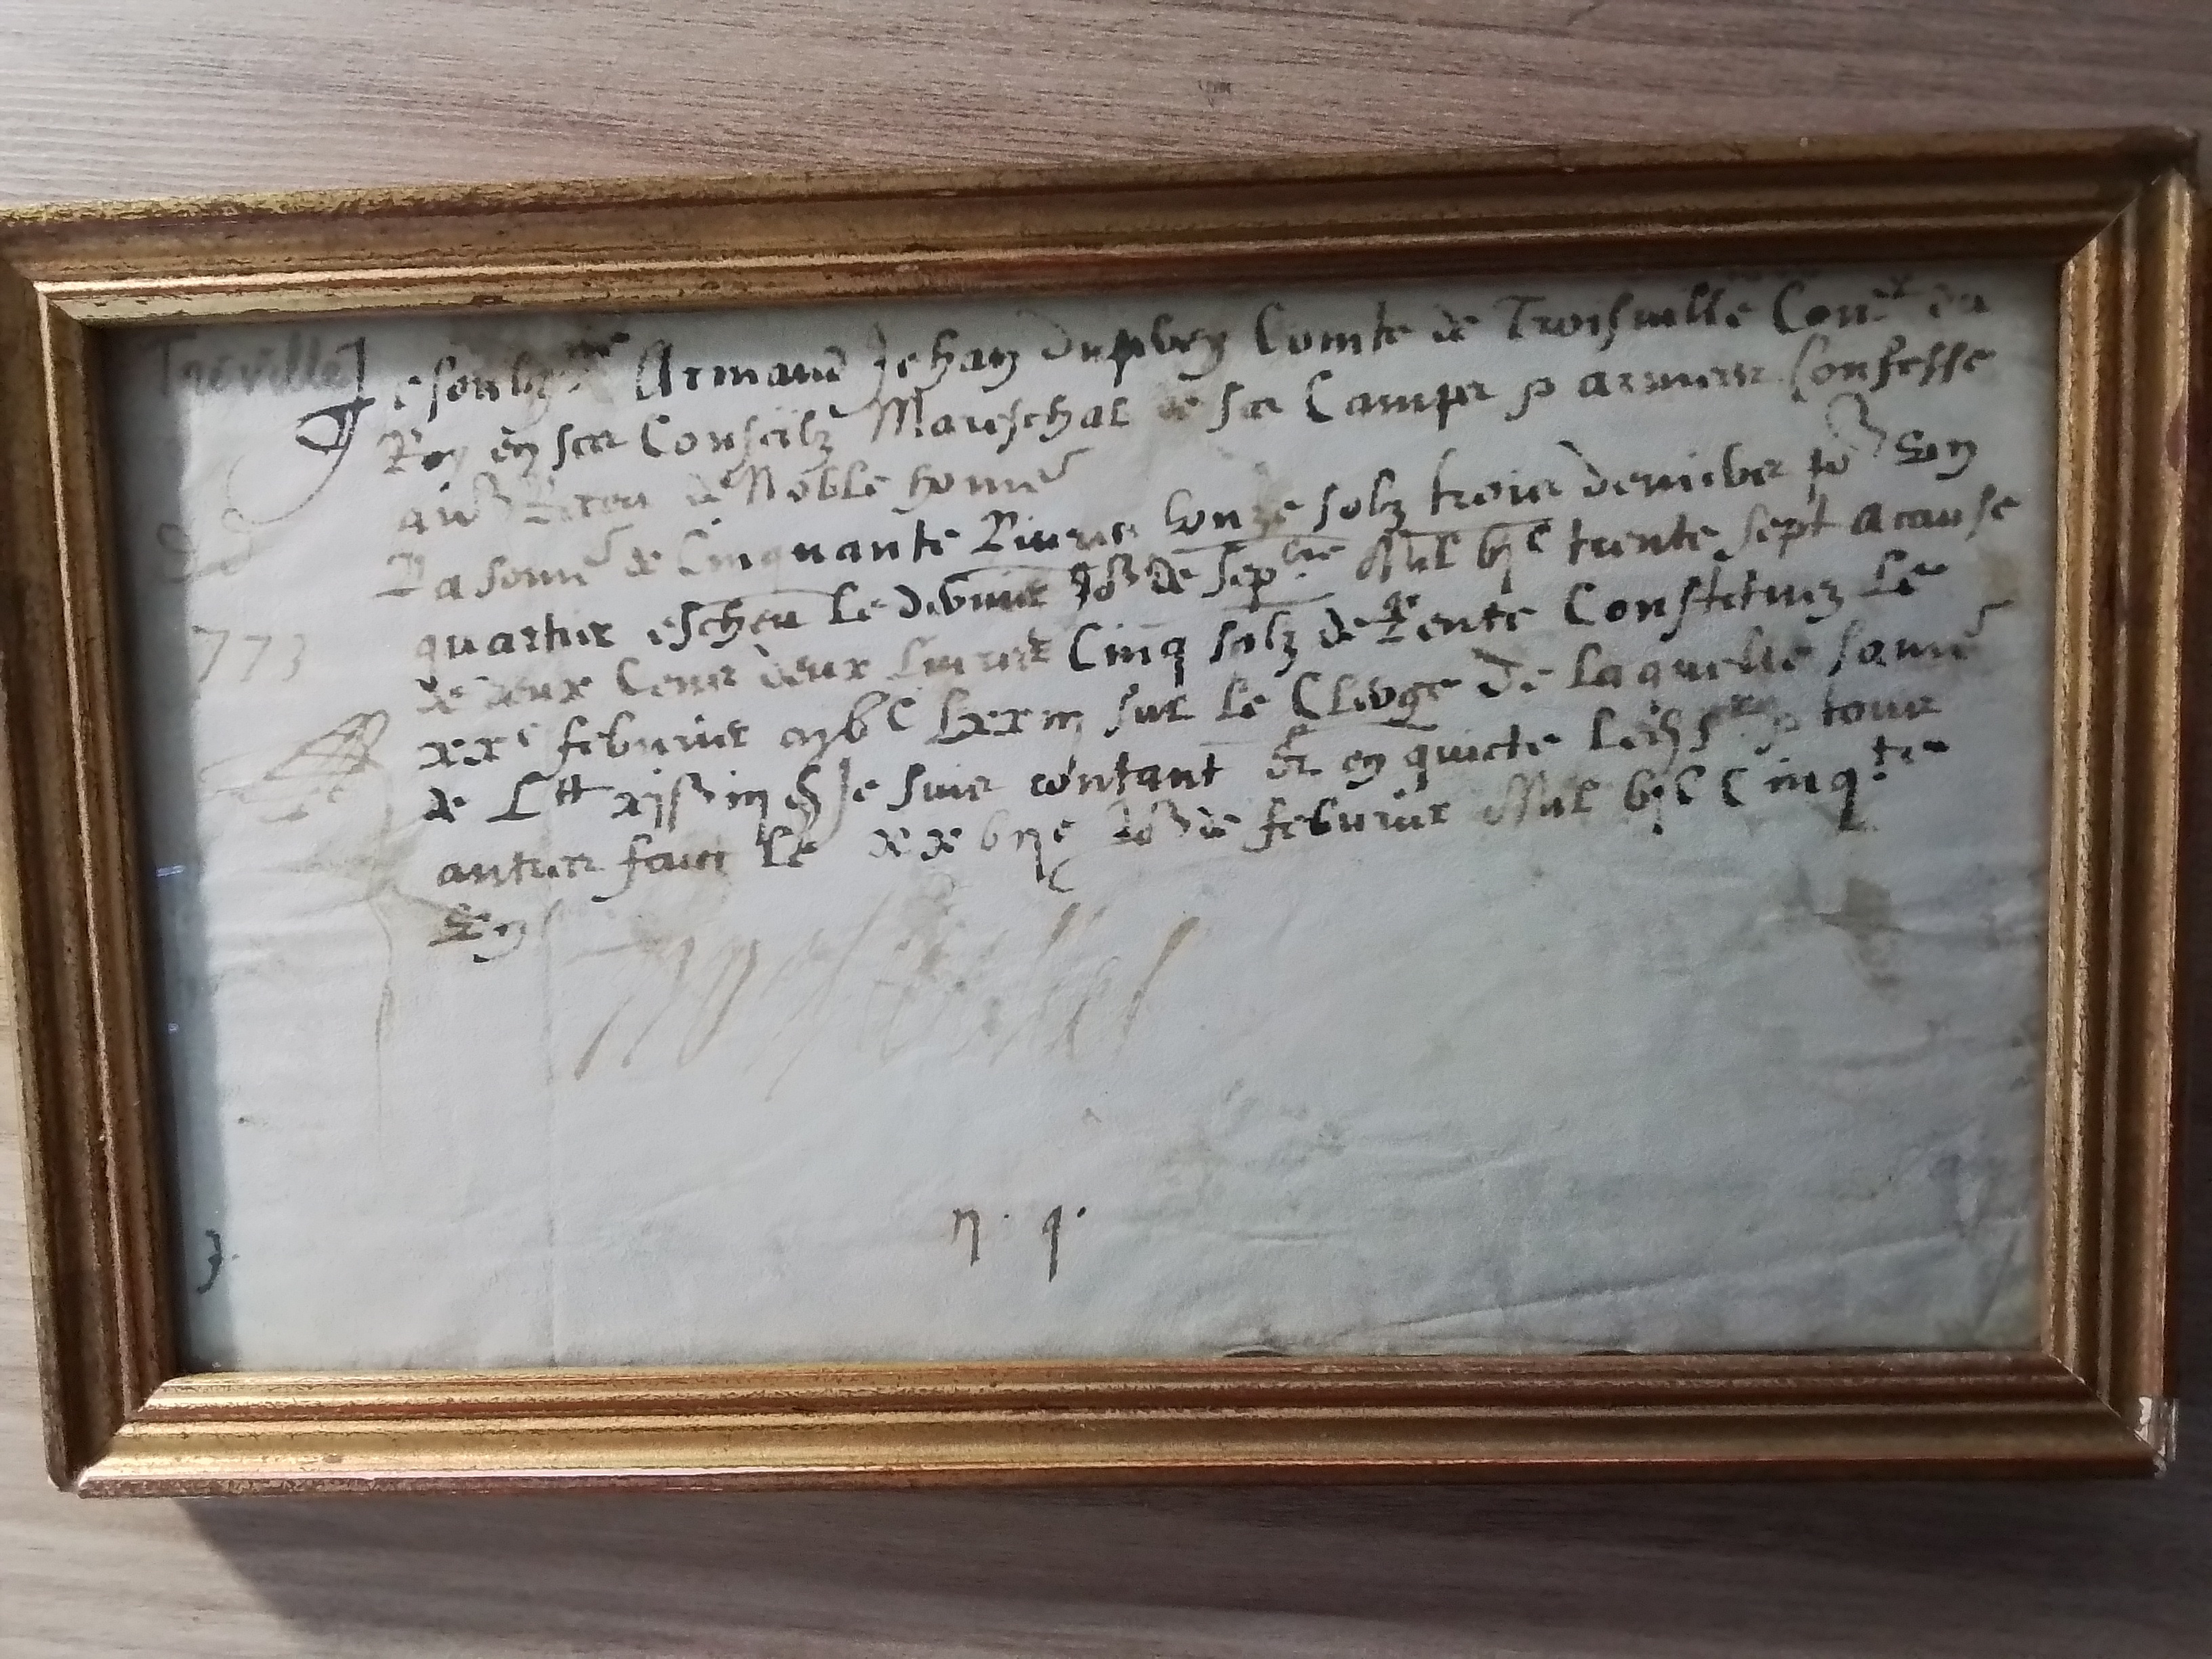 Treville
Je soubz.ne Armand Jehan dupeyrey Comte de Troisuille Con.er du
Roy en ses Conseilz Mareschal de ses Camps & armees Confesse
auoir Receu de Noble homme
La somme de Cinquante Liures unze solz trois deniers po.r un
quartier escheu le dernier Jo.r de sep.bre Mil vj.c trente sept a cause
de deux Cens deux liures Cinq solz de Rente Constituez Le
xx.e febvrier m v.c lxxiij sur le Clerge de laquelle somme
de L.tt xj s. iij d. Je suis contant & en quicte led. s.r & tous
autres faict Le xx vij.e Jo.r de febvrier Mil vj.c Cinq.te
Un
773
n. q.